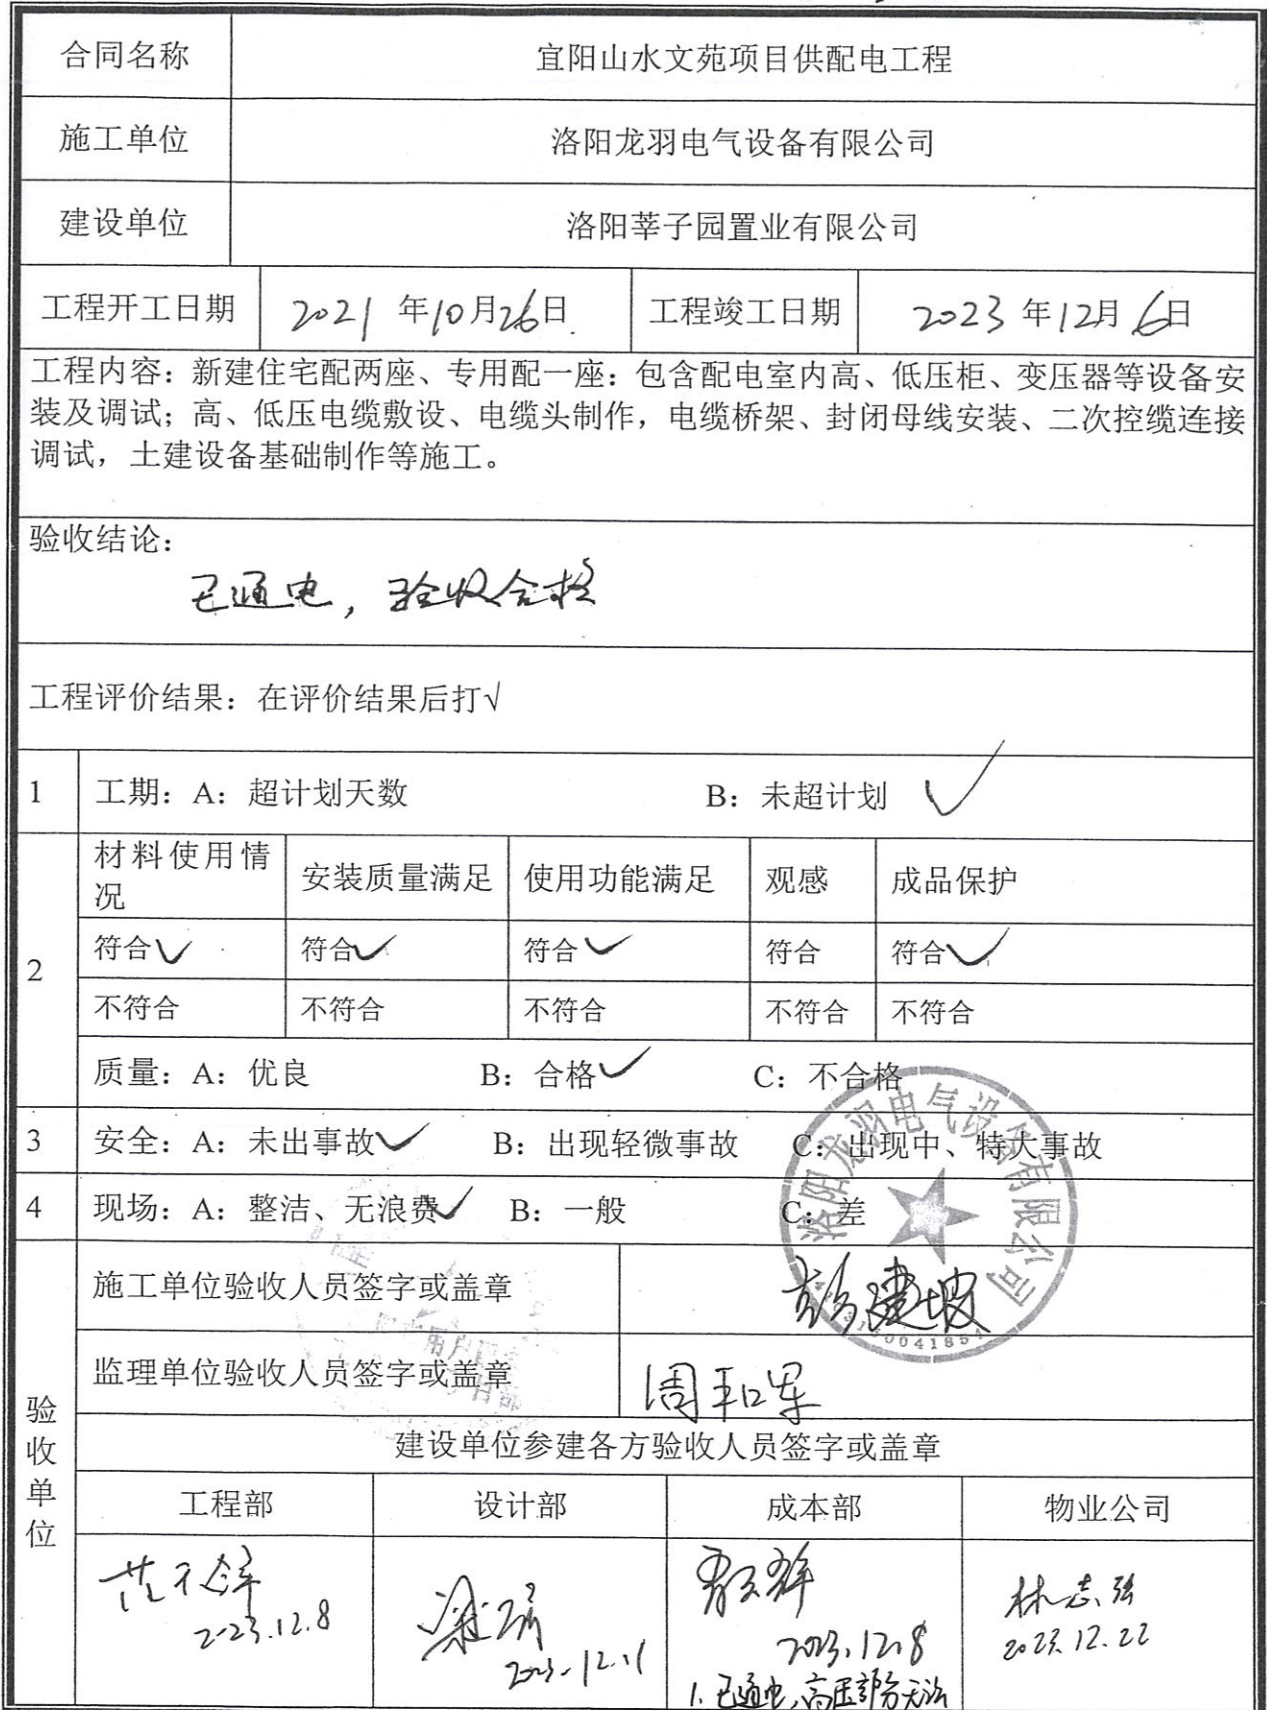 合同名称 宜阳山水文苑项目供配电工程
施工单位 洛阳龙羽电气设备有限公司
建设单位 洛阳莘子园置业有限公司
工程开工日期 2021 年10月26日 工程竣工日期 2023 年12月6日
工程内容：新建住宅配两座、专用配一座：包含配电室内高、低压柜、变压器等设备安
装及调试；高、低压电缆敷设、电缆头制作，电缆桥架、封闭母线安装、二次控缆连接
调试，土建设备基础制作等施工。
验收结论：
已通电，验收合格
工程评价结果：在评价结果后打√
1 工期：A：超计划天数 B：未超计划 ✓
材料使用情
况 安装质量满足 使用功能满足 观感 成品保护
2
符合✓ 符合✓ 符合✓ 符合 符合✓
不符合 不符合 不符合 不符合 不符合
质量：A：优良 B：合格✓ C：不合格
3 安全：A：未出事故✓ B：出现轻微事故 C：出现中、特大事故
4 现场：A：整洁、无浪费✓ B：一般 C：差
洛阳龙羽电气设备有限公司
验收单位
施工单位验收人员签字或盖章 彭建坡
监理单位验收人员签字或盖章 周和军
建设单位参建各方验收人员签字或盖章
工程部 设计部 成本部 物业公司
林志强
2023.12.8 2023.12.11 2023.12.8 2023.12.22
1.已通电，高压部分无法